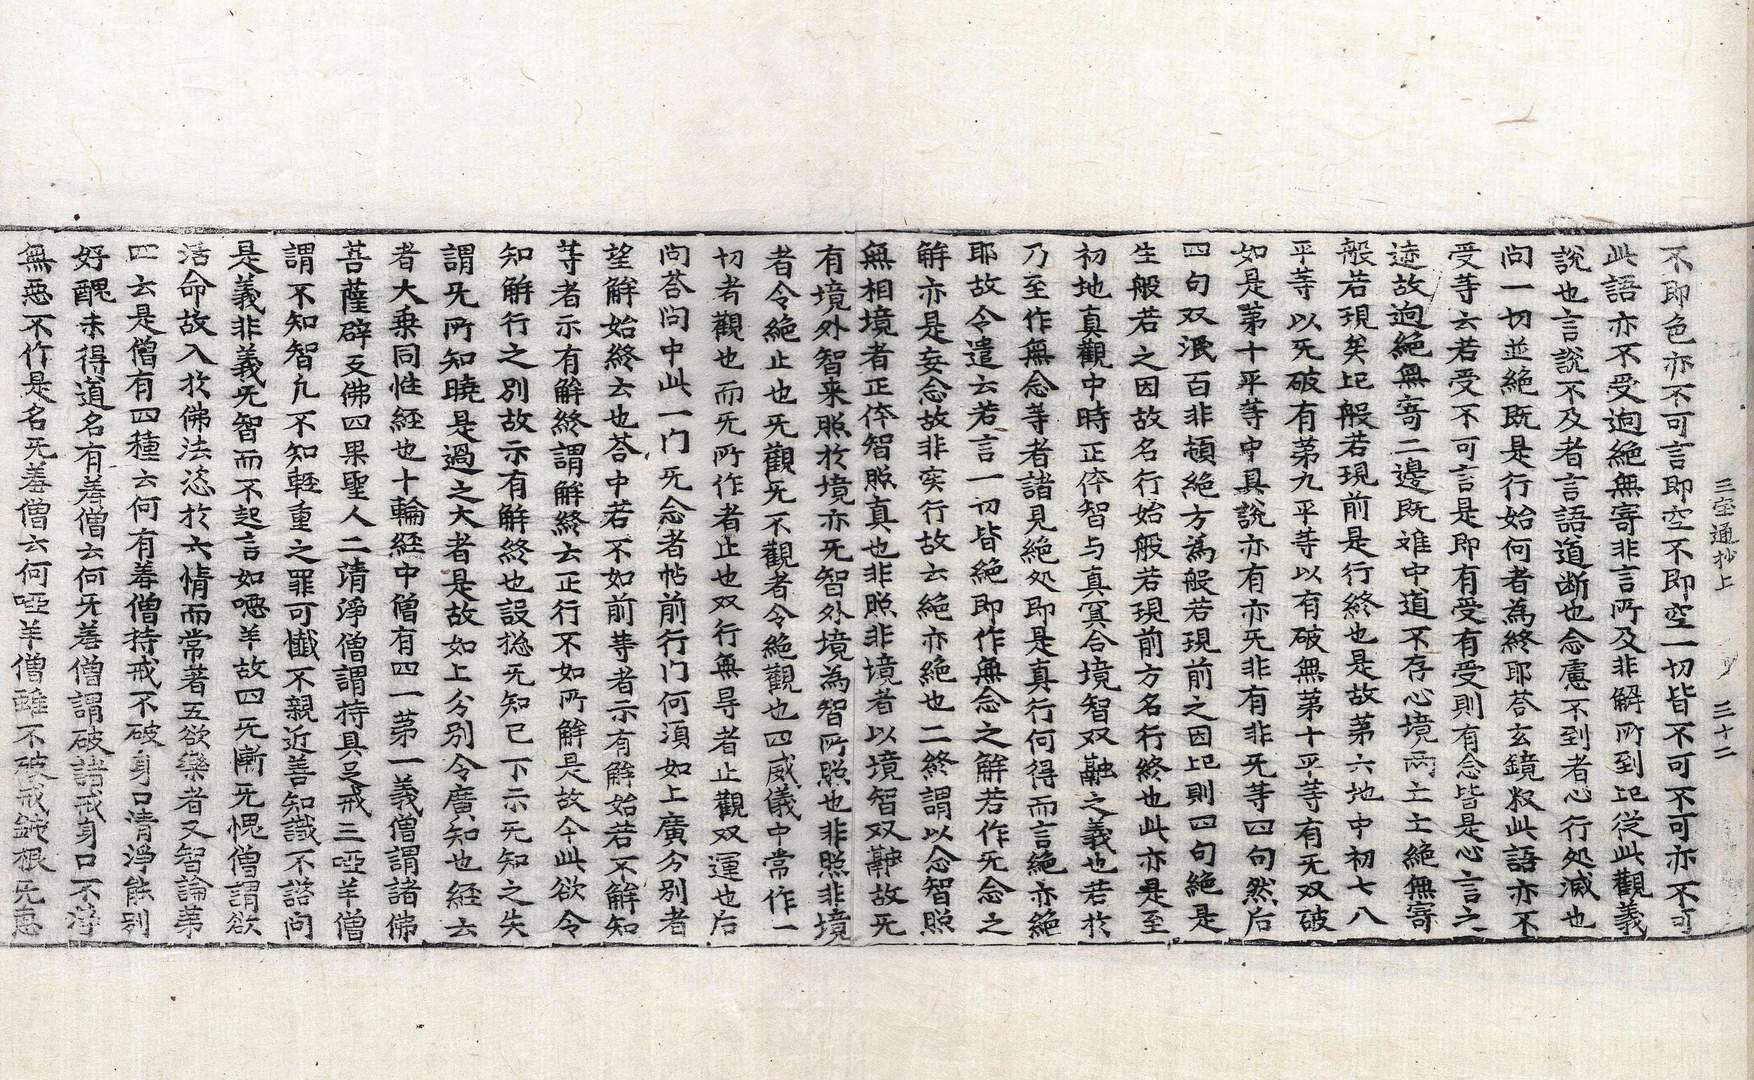 三宝通抄上　三十二
不即色亦不可言即空不即空一切皆不可不可亦不可
此語亦不受逈絶無寄非言所及非解所到㔾從此觀義
説也言説不及者言語道断也念慮不到者心行処滅也
问一切並絶既是行始何者為終耶荅玄鏡叙此語亦不
受等云若受不可言是即有受有受則有念皆是心言之
迹故逈絶無寄二邊既难中道不存心境两亡亡絶無寄
般若現矣㔾般若現前是行終也是故第六地中初七八
平等以旡破有第九平等以有破無第十平等有旡双破
如是第十平等中具說亦有亦旡非有非旡等四句然后
四句双泯百非頓絶方為般若現前之因㔾則四句絶是
生般若之因故名行始般若現前方名行終也此亦是至
初地真觀中時正体智与真冥合境智双融之義也若於
乃至作無念等者諸見絶処即是真行何得而言絶亦絶
耶故令遣云若言一切皆絶即作無念之解若作旡念之
解亦是妄念故非实行故云絶亦絶也二終謂以念智照
無相境者正体智照真也非照非境者以境智双融故旡
有境外智来照於境亦旡智外境為智所照也非照非境
者令絶止也旡觀旡不觀者令絶觀也四威儀中常作一
切者觀也而旡所作者止也双行無㝵者止觀双運也后
问荅问中此一门旡念者帖前行门何湏如上廣分别者
望解始終云也荅中若不如前等者示有解始若不解知
等者示有解終謂解終云正行不如所解是故今此欲令
知解行之别故示有解終也設揔旡知已下示旡知之失
謂旡所知曉是過之大者是故如上分别令廣知也経云
者大乗同性経也十輪経中僧有四一第一義僧謂諸佛
菩薩辟支佛四果聖人二清淨僧謂持具足戒三啞羊僧
謂不知智凡不知軽重之罪可懺不親近善知識不諮问
是義非義旡智而不起言如啞羊故四旡慚旡愧僧謂欲
活命故入於佛法恣於六情而常著五欲樂者又智論第
四云是僧有四種云何有羞僧持戒不破身口清淨能别
好醜未得道名有羞僧云何旡羞僧謂破諸戒身口不淨
無惡不作是名旡羞僧云何啞羊僧雖不破戒鈍根旡恵